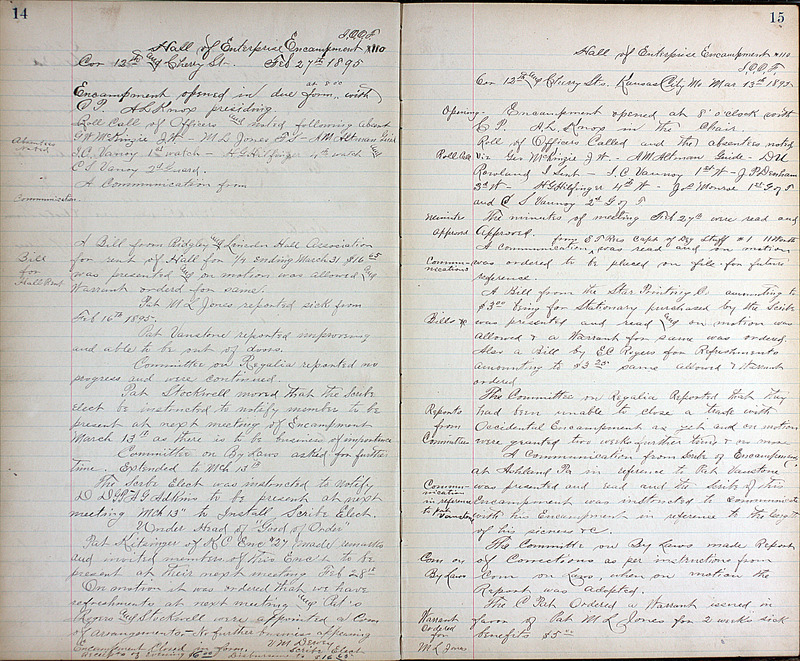 14
I.O.O.F
Hall of Enterprise Encampment #110
Cor 12th and Cherry St. Feb 27th 1895
Encampment opened in due form at 8 00 with
C P. A L Knox presiding.
Roll Call of Officers and noted following absent
Absentees
Noted
G W McKinzie J W - M L Jones F S - A M Altman Guide
I C Vannoy 1st watch - H G Hilfinger 4th watch and
C S Vannoy 2d Guard.
A Communication from
Communication.
Bill
for
Hall Rent
A Bill from Ridgley and Lincoln Hall Association
for rent of Hall for 1/4 ending March 31 $16 65
was presented and on motion was allowed and
Warrant orderd for same.
Pat M L Jones reported sick from
Feb 16th 1895.
Pat Vanstone reported improoving
and able to be out of doors.
Committee on Regalia reported no
progress and were continued.
Pat Stockwell moved that the Scribe
Elect be instructed to notify member to be
present at next meeting of Encampment
March 13th as there is to be business of importance
Committee on By Laws asked for further
time. Extended to Mch 13th
The Scribe Elect was instructed to notify
D D G P H G Adkins to be present at next
meeting Mch 13" to Install Scribe Elect.
Under Head of "Good of Order"
Pat Kitzinger of K C Enc #27 made remarks
and invited members of this Enc't to be
present at their next meeting Feb 28th
On motion it was ordered that we have
refreshments at next meeting and Pat's
and Stockwell were appointed a Com
of arrangements - No further business appearing
Encampment Closed in form.
Receipts of evening $6 00 Disbursments $16 65
Scribe Elect
15
Hall of Enterprise Encampment #110
I.O.O.F
Cor 12th and Cherry Sts. Kansas City Mo. Mar 13th 1895
Opening.
Encampment opened at 8 o'clock with
C P. A L Knox in the Chair.
Roll Call
Roll of Officers Called and the absentees noted
Viz Geo McKinzie J W - A M Altman Guide - D U
Rowland I Sent - I C Vannoy 1st W - J P Denham
3d W - H G Hilfinger 4th W - Jos Monroe 1st G of T
and C S Vannoy 2d G of T
Minute
Approvd
The minutes of meeting Feb 27th were read and
Approved.
from E T Capt of Deg Staff #1
Communications
A communication was read and on motion
was ordered to be placed on file for future
reference.
A Bill from the Star Printing Co. amounting to
$3 00 being for Stationary purchased by the Scribe
Bills &c
was presented and read and on motion was
allowed & a Warrant for same was ordered.
Also a Bill by E C Rogers for Refreshments
amounting to $3 25 same allowed & Warrant
ordered
Reports
from
Committees
The Committee on Regalia Reported that they
had been unable to close a trade with
Occidental Encampment as yet and on motion
were granted two weeks further time, & no more
A Communication from Scribe of Encampment
at Ashland Pa in reference to Pat Vanstone
Communication
in reference
to Pat
Vanstone
was presented and read and the Scribe of this
Encampment was instructed to Communicate
with his Encampment in reference to the length
of his sicness &c.
Com on
By Laws
The Committee on By Laws made Report
of Corrections as per instructions from
Com on Laws, when on motion the
Report was adopted.
Warrant
Ordered
for
M L Jones
The C Pat Ordered a Warrant issued in
favor of Pat M L Jones for 2 weeks sick
benefits $5 00